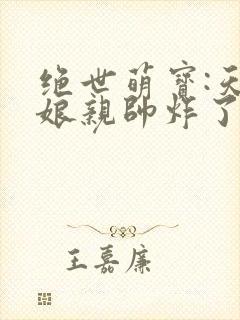 绝世萌宝:天
娘亲帅炸了
王嘉廉